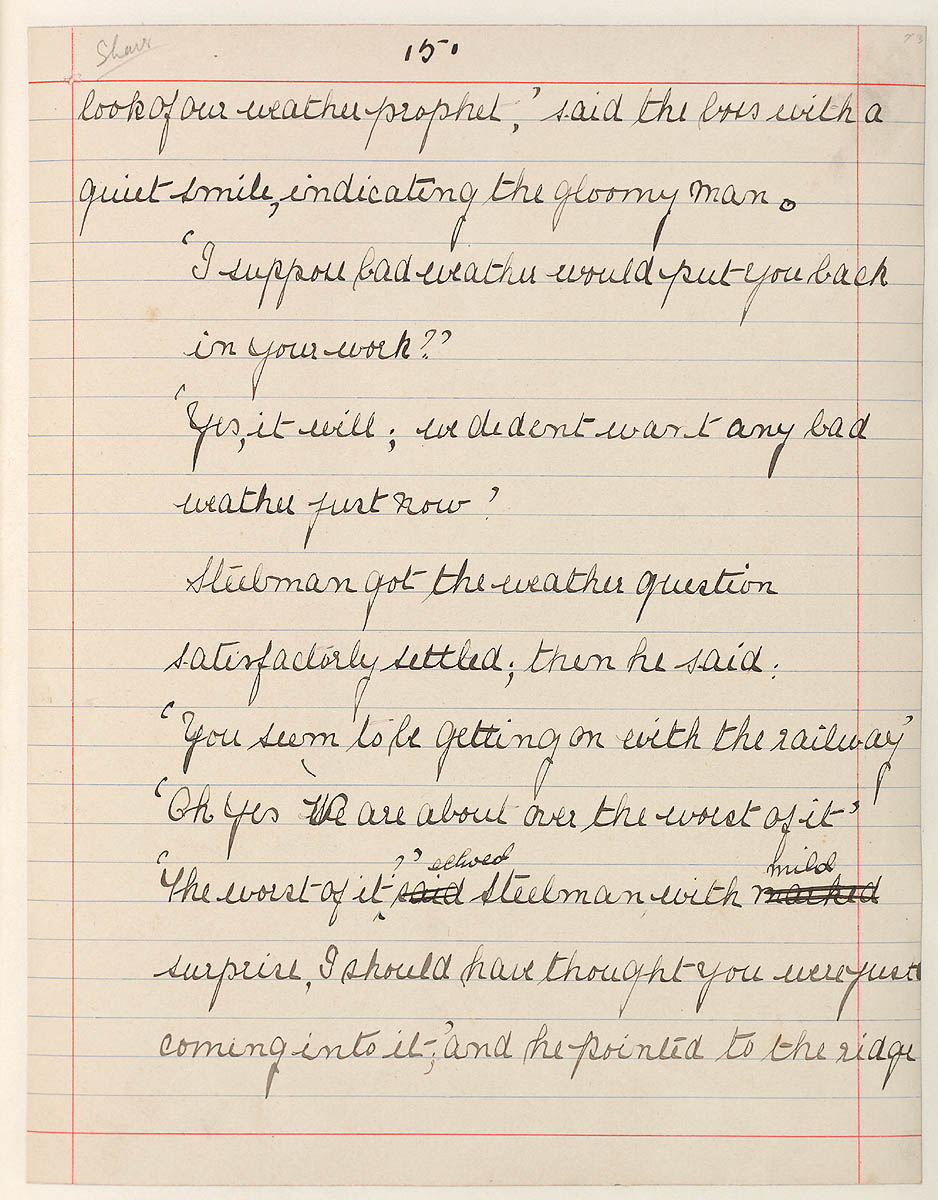 Shaw
151
look of our weather prophet,' said the boss with a
quiet smile, indicating the gloomy man.
'I suppose bad weather would put you back
in your work??
'Yes, it will; we dident want any bad
weather just now'
Steelman got the weather question
satisfactorly settled; then he said:
'You seem to be getting on with the railway'
'Oh Yes We are about over the worst of it'
echoed mild
'The worst of it?' said Steelman with marked
surprise, I should have thought you were just
coming into it,' and he pointed to the ridge